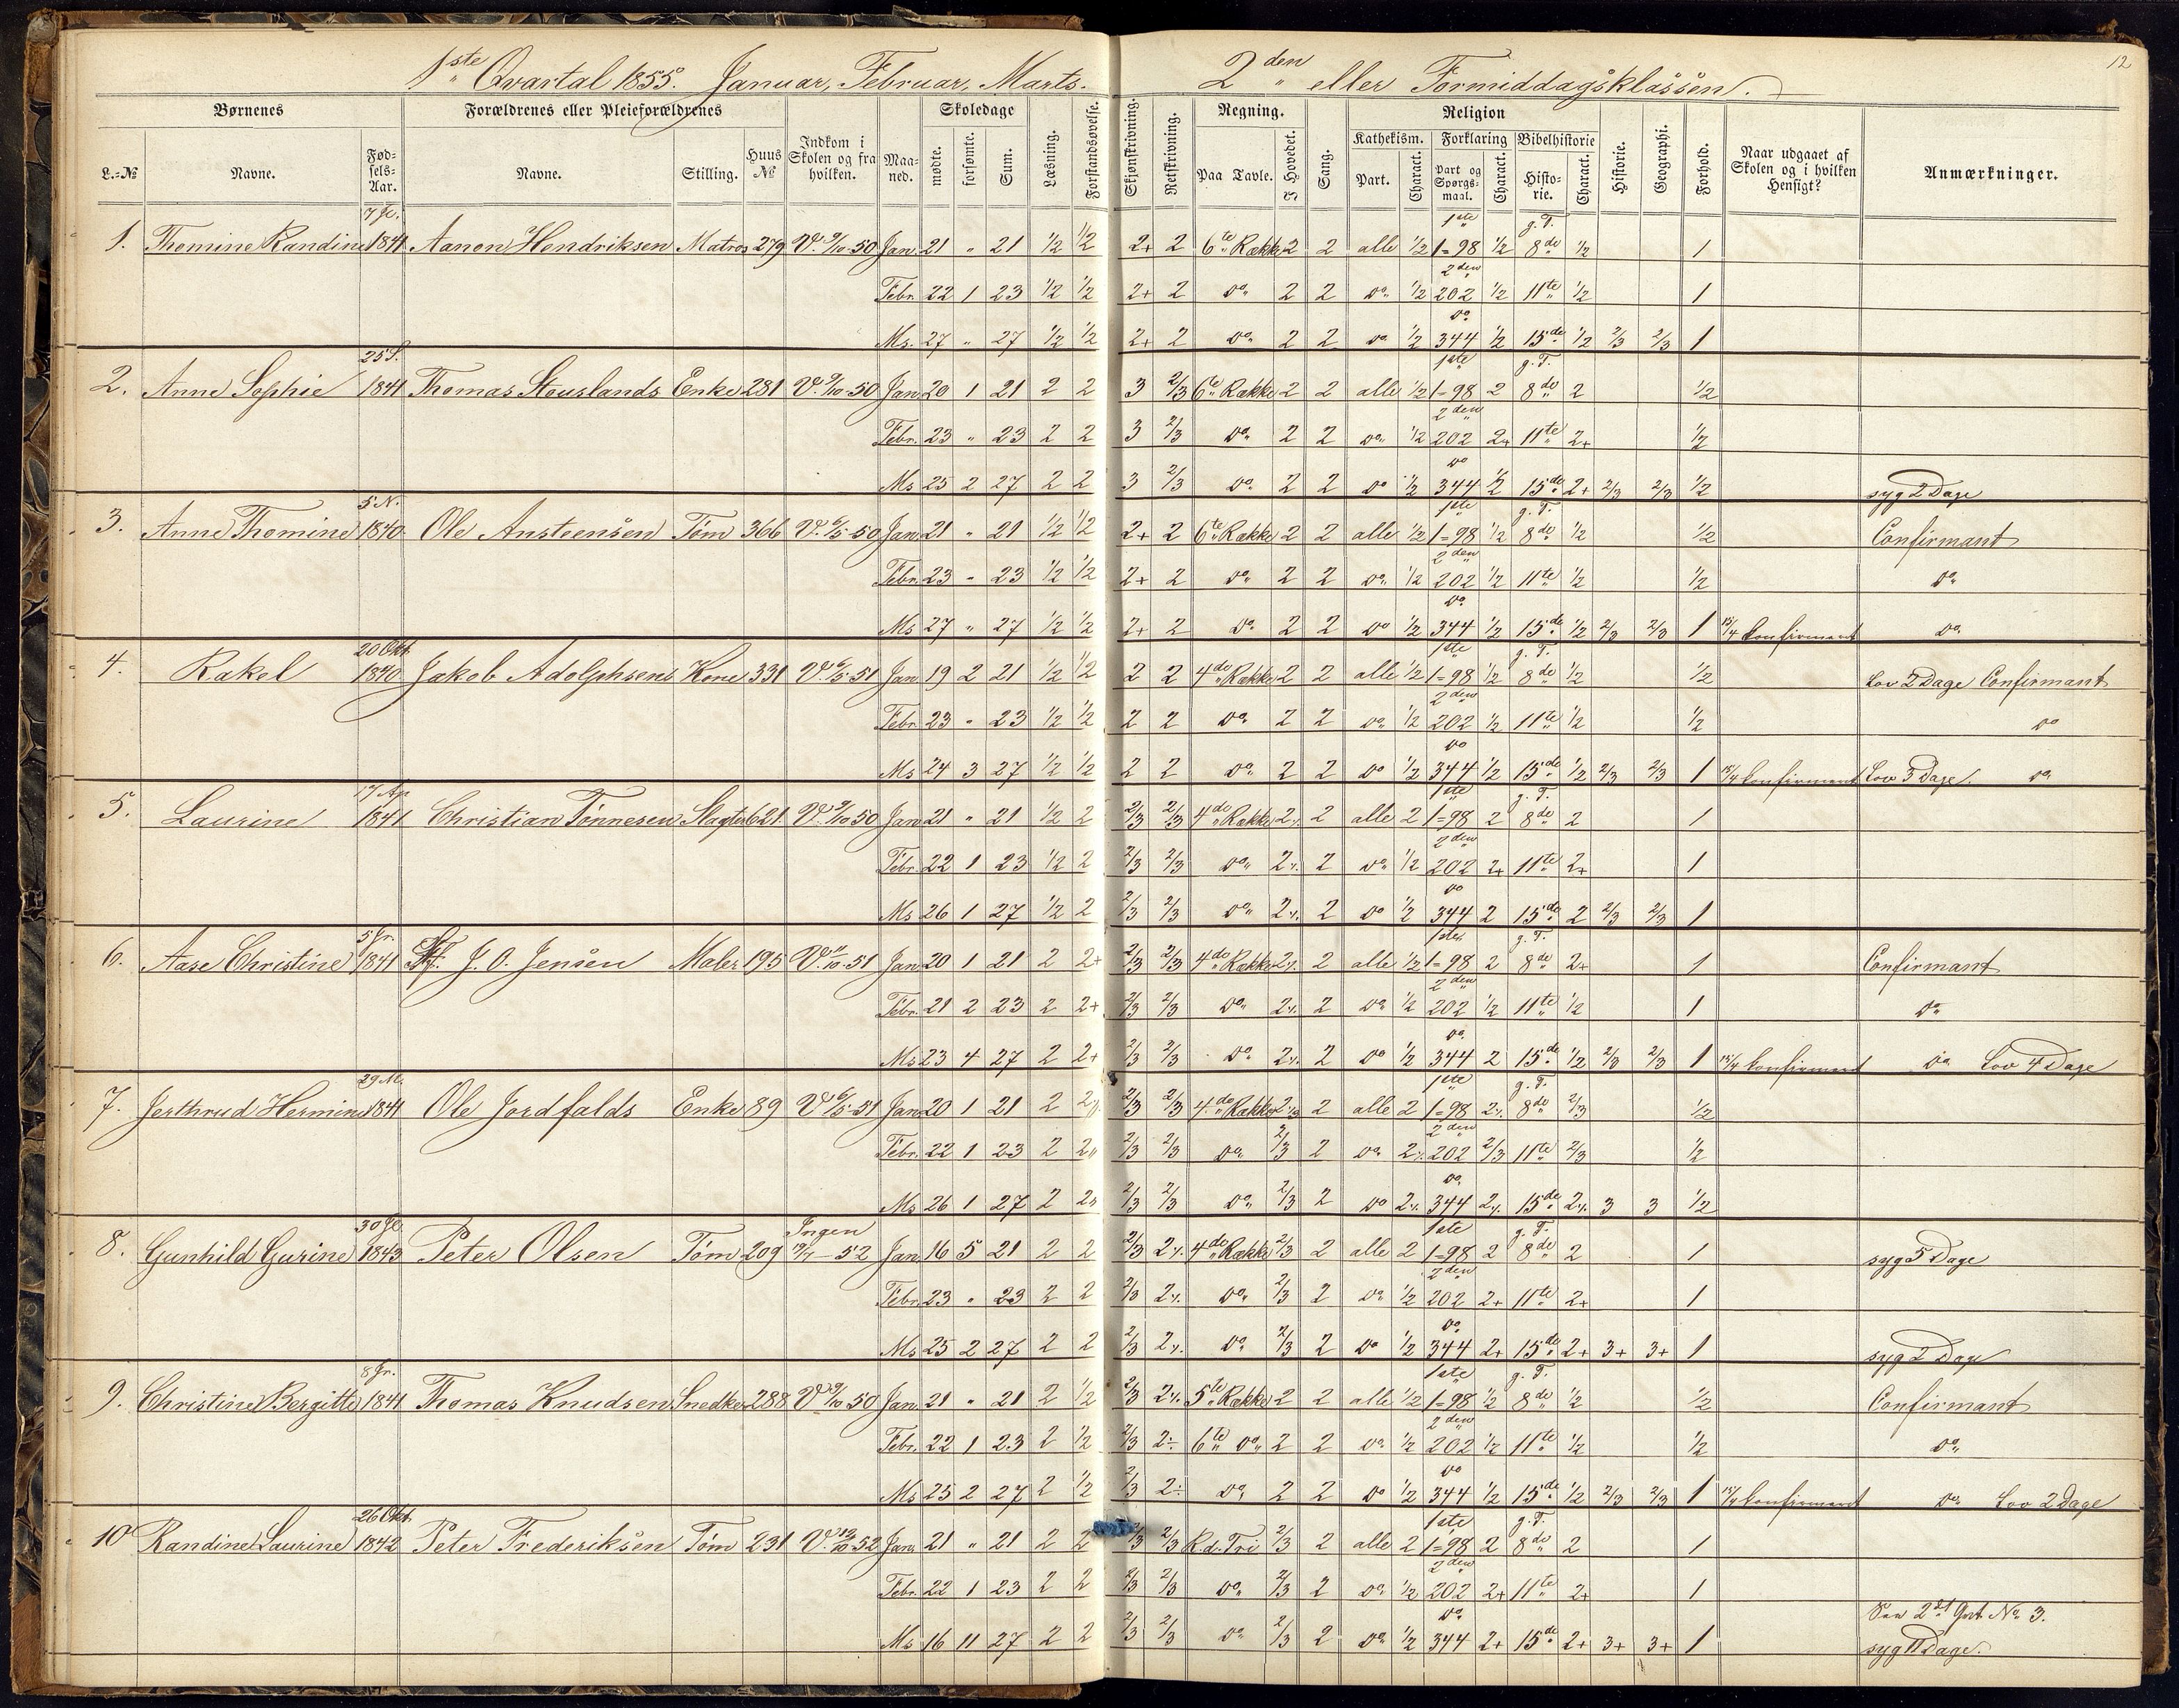 1ste Qvartal 1855. Januar, Februar, Marts. 2den eller Formiddagsklassen. 12
Børnenes Forældrenes eller Pleieforældrenes Indkom i Skolen og fra hvilken. Maaned. Skoledage Læsning. Forstandsøvelse. Skjønskrivning. Retskrivning. Regning. Sang. Religion Historie. Geographi. Forhold. Naar udgaaet af Skolen og i hvilken Hensigt? Anmærkninger.
L.-No Navne. Fødsels-Aar. Navne. Stilling. Huus No mødte. forsømte. Sum. Paa Tavle. I Hovedet. Kathekism. Part. Charact. Forklaring Part og Spørgsmaal. Charact. Bibelhistorie Historie. Charact.
7 Je. 1ste g. T.
1. Thomine Randine 1841 Aanon Hendriksen Matros 279 V. 9/10 50 Jan. 21 " 21 1/2 1/2 2+ 2 6te Række 2 2 alle 1/2 1=98 1/2 8de 1/2 1
2den
Febr. 22 1 23 1/2 1/2 2+ 2 do 2 2 do 1/2 202 1/2 11te 1/2 1
do
Ms. 27 " 27 1/2 1/2 2+ 2 do 2 2 do 1/2 344 1/2 15de 1/2 2/3 2/3 1
25 S. 1ste g. T.
2. Anne Sophie 1841 Thomas Stouslands Enke 281 V. 9/10 50 Jan. 20 1 21 2 2 3 2/3 6te Række 2 2 alle 1/2 1=98 2 8de 2 1/2
2den
Febr. 23 " 23 2 2 3 2/3 do 2 2 do 1/2 202 2+ 11te 2+ 1/2
do
Ms 25 2 27 2 2 3 2/3 do 2 2 do 1/2 344 1/2 15de 2+ 2/3 2/3 1/2 syg 2 Dage
5 N. 1ste g. T.
3. Anne Thomine 1840 Ole Ansteensen Tøm 366 V. 6/5 50 Jan. 21 " 21 1/2 1/2 2+ 2 6te Række 2 2 alle 1/2 1=98 1/2 8de 1/2 1/2 Confirmant
2den
Febr. 23 " 23 1/2 1/2 2+ 2 do 2 2 do 1/2 202 1/2 11te 1/2 1/2 do
do
Ms 27 " 27 1/2 1/2 2+ 2 do 2 2 do 1/2 344 1/2 15de 1/2 2/3 2/3 1 15/4 Confirmant do
20 Okt. 1ste g. T.
4. Rakel 1840 Jakob Adolphsens Kone 331 V. 6/5 51 Jan 19 2 21 1/2 1/2 2 2 4de Række 2 2 alle 1/2 1=98 1/2 8de 1/2 1/2 Lov 2 Dage Confirmant
2den
Febr. 23 " 23 1/2 1/2 2 2 do 2 2 do 1/2 202 1/2 11te 1/2 1/2 do
do
Ms 24 3 27 1/2 1/2 2 2 do 2 2 do 1/2 344 1/2 15de 1/2 2/3 2/3 1 15/4 Confirmant Lov 3 Dage. do
17 Ap 1ste g. T.
5. Laurine 1841 Christian Tønnesen Slagter 621 V. 9/10 50 Jan. 21 " 21 1/2 2 2/3 2/3 4de Række 2% 2 alle 2 1=98 2 8de 2 1
2den
Febr. 22 1 23 1/2 2 2/3 2/3 do 2% 2 do 1/2 202 2+ 11te 2+ 1
do
Ms 26 1 27 1/2 2 2/3 2/3 do 2% 2 do 1/2 344 2 15de 2 2/3 2/3 1
5 Jr. 1ste g. T.
6. Aase Christine 1841 J. O. Jensen Maler 195 51 Jan 20 1 21 2 2+ 2/3 2/3 4de Række 2% 2 alle 1/2 1=98 2 8de 2+ 1 Confirmant
2den
Febr. 21 2 23 2 2+ 2/3 2/3 do 2% 2 do 1/2 202 1/2 11te 1/2 1 do
do
Ms 23 4 27 2 2+ 2/3 2/3 do 2% 2 do 1/2 344 2 15de 1/2 2/3 2/3 1 15/4 Confirmant do Lov 4 Dage
29 M. 1ste g. T.
7. Jerthrud Hermine 1841 Ole Jordfalds Enke 89 V. 6/5 51 Jan 20 1 21 2 2% 2/3 2/3 4de Række 2 alle 2 1=98 2% 8de 2/3 1/2
2den
Febr. 22 1 23 2 2% 2/3 2/3 do 2/3 2 do 2% 202 2/3 11te 2/3 1/2
do
Ms 26 1 27 2 2% 2/3 2/3 do 2/3 2 do 2% 344 2% 15de 2% 3 3 1/2
30 Je. Ingen 1ste g. T.
8. Gunhild Gurine 1843 Peter Olsen Tøm 209 52 Jan. 16 5 21 2 2 2/3 2% 4de Række 2/3 2 alle 2 1=98 2 8de 2 1 syg 5 Dage
2den
Febr. 23 " 23 2 2 2/3 2% do 2/3 2 do 1/2 202 2+ 11te 2+ 1
do
Ms 25 2 27 2 2 2/3 2% do 2/3 2 do 1/2 344 2+ 15de 2+ 3+ 3+ 1 syg 2 Dage
8 Jr. 1ste g. T.
9. Christine Bergitte 1841 Thomas Knudsen Snedker 288 V. 9/10 50 Jan. 21 " 21 2 1/2 2/3 2% 5te Række 2 2 alle 1/2 1=98 1/2 8de 1/2 1/2 Confirmant
2den
Febr. 22 1 23 2 1/2 2/3 2÷ 6te do 2 2 do 1/2 202 1/2 11te 1/2 1/2 do
do
Ms 25 2 27 2 1/2 2/3 2÷ do 2 2 do 1/2 344 1/2 15de 1/2 2/3 2/3 1 15/4 Confirmant do Lov 2 Dage
26 Okt. 1ste g. T.
10 Randine Laurine 1842 Peter Frederiksen Tøm 231 52 Jan. 21 " 21 2 2 2/3 2/3 R. d. Tri 2/3 2 alle 2 1=98 2 8de 2 1
2den
Febr. 22 1 23 2 2 2/3 2/3 do 2/3 2 do 1/2 202 2+ 11te 2+ 1
do 2det Qvt No 3.
Ms 16 11 27 2 2 2/3 2/3 do 2/3 2 do 1/2 344 2+ 15de 2+ 3+ 3+ 1 syg 11 Dage.